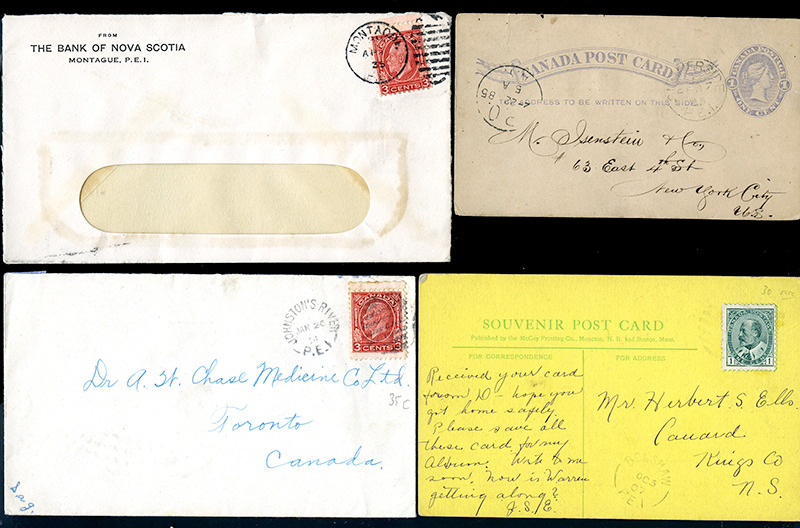 FROM
THE BANK OF NOVA SCOTIA
MONTAGUE, P.E.I.
MONTAGUE
35
P.E.I.
3 CENTS 3
CANADA POST CARD
CANADA POSTAGE
ONE CENT
TO
ADDRESS TO BE WRITTEN ON THIS SIDE
85
M. Isenstein & Co,
63 East 4th St
New York City
U.S.
JOHNSTON'S RIVER
JAN 26
34
P.E.I.
CANADA
3 CENTS 3
Dr A. W. Chase Medicine Co Ltd.
Toronto
Canada.
35c
SOUVENIR POST CARD
Published by the McCoy Printing Co., Moncton, N. B. and Boston, Mass.
FOR CORRESPONDENCE
FOR ADDRESS
30
CANADA POSTAGE
1 1
Received your card
from D - hope you
got home safely
Please save all
these card for my
Album. Write to me
soon. How is Warren
getting along?
J.S.E.
Mr. Herbert S. Ells.
Canard
Kings Co
N.S.